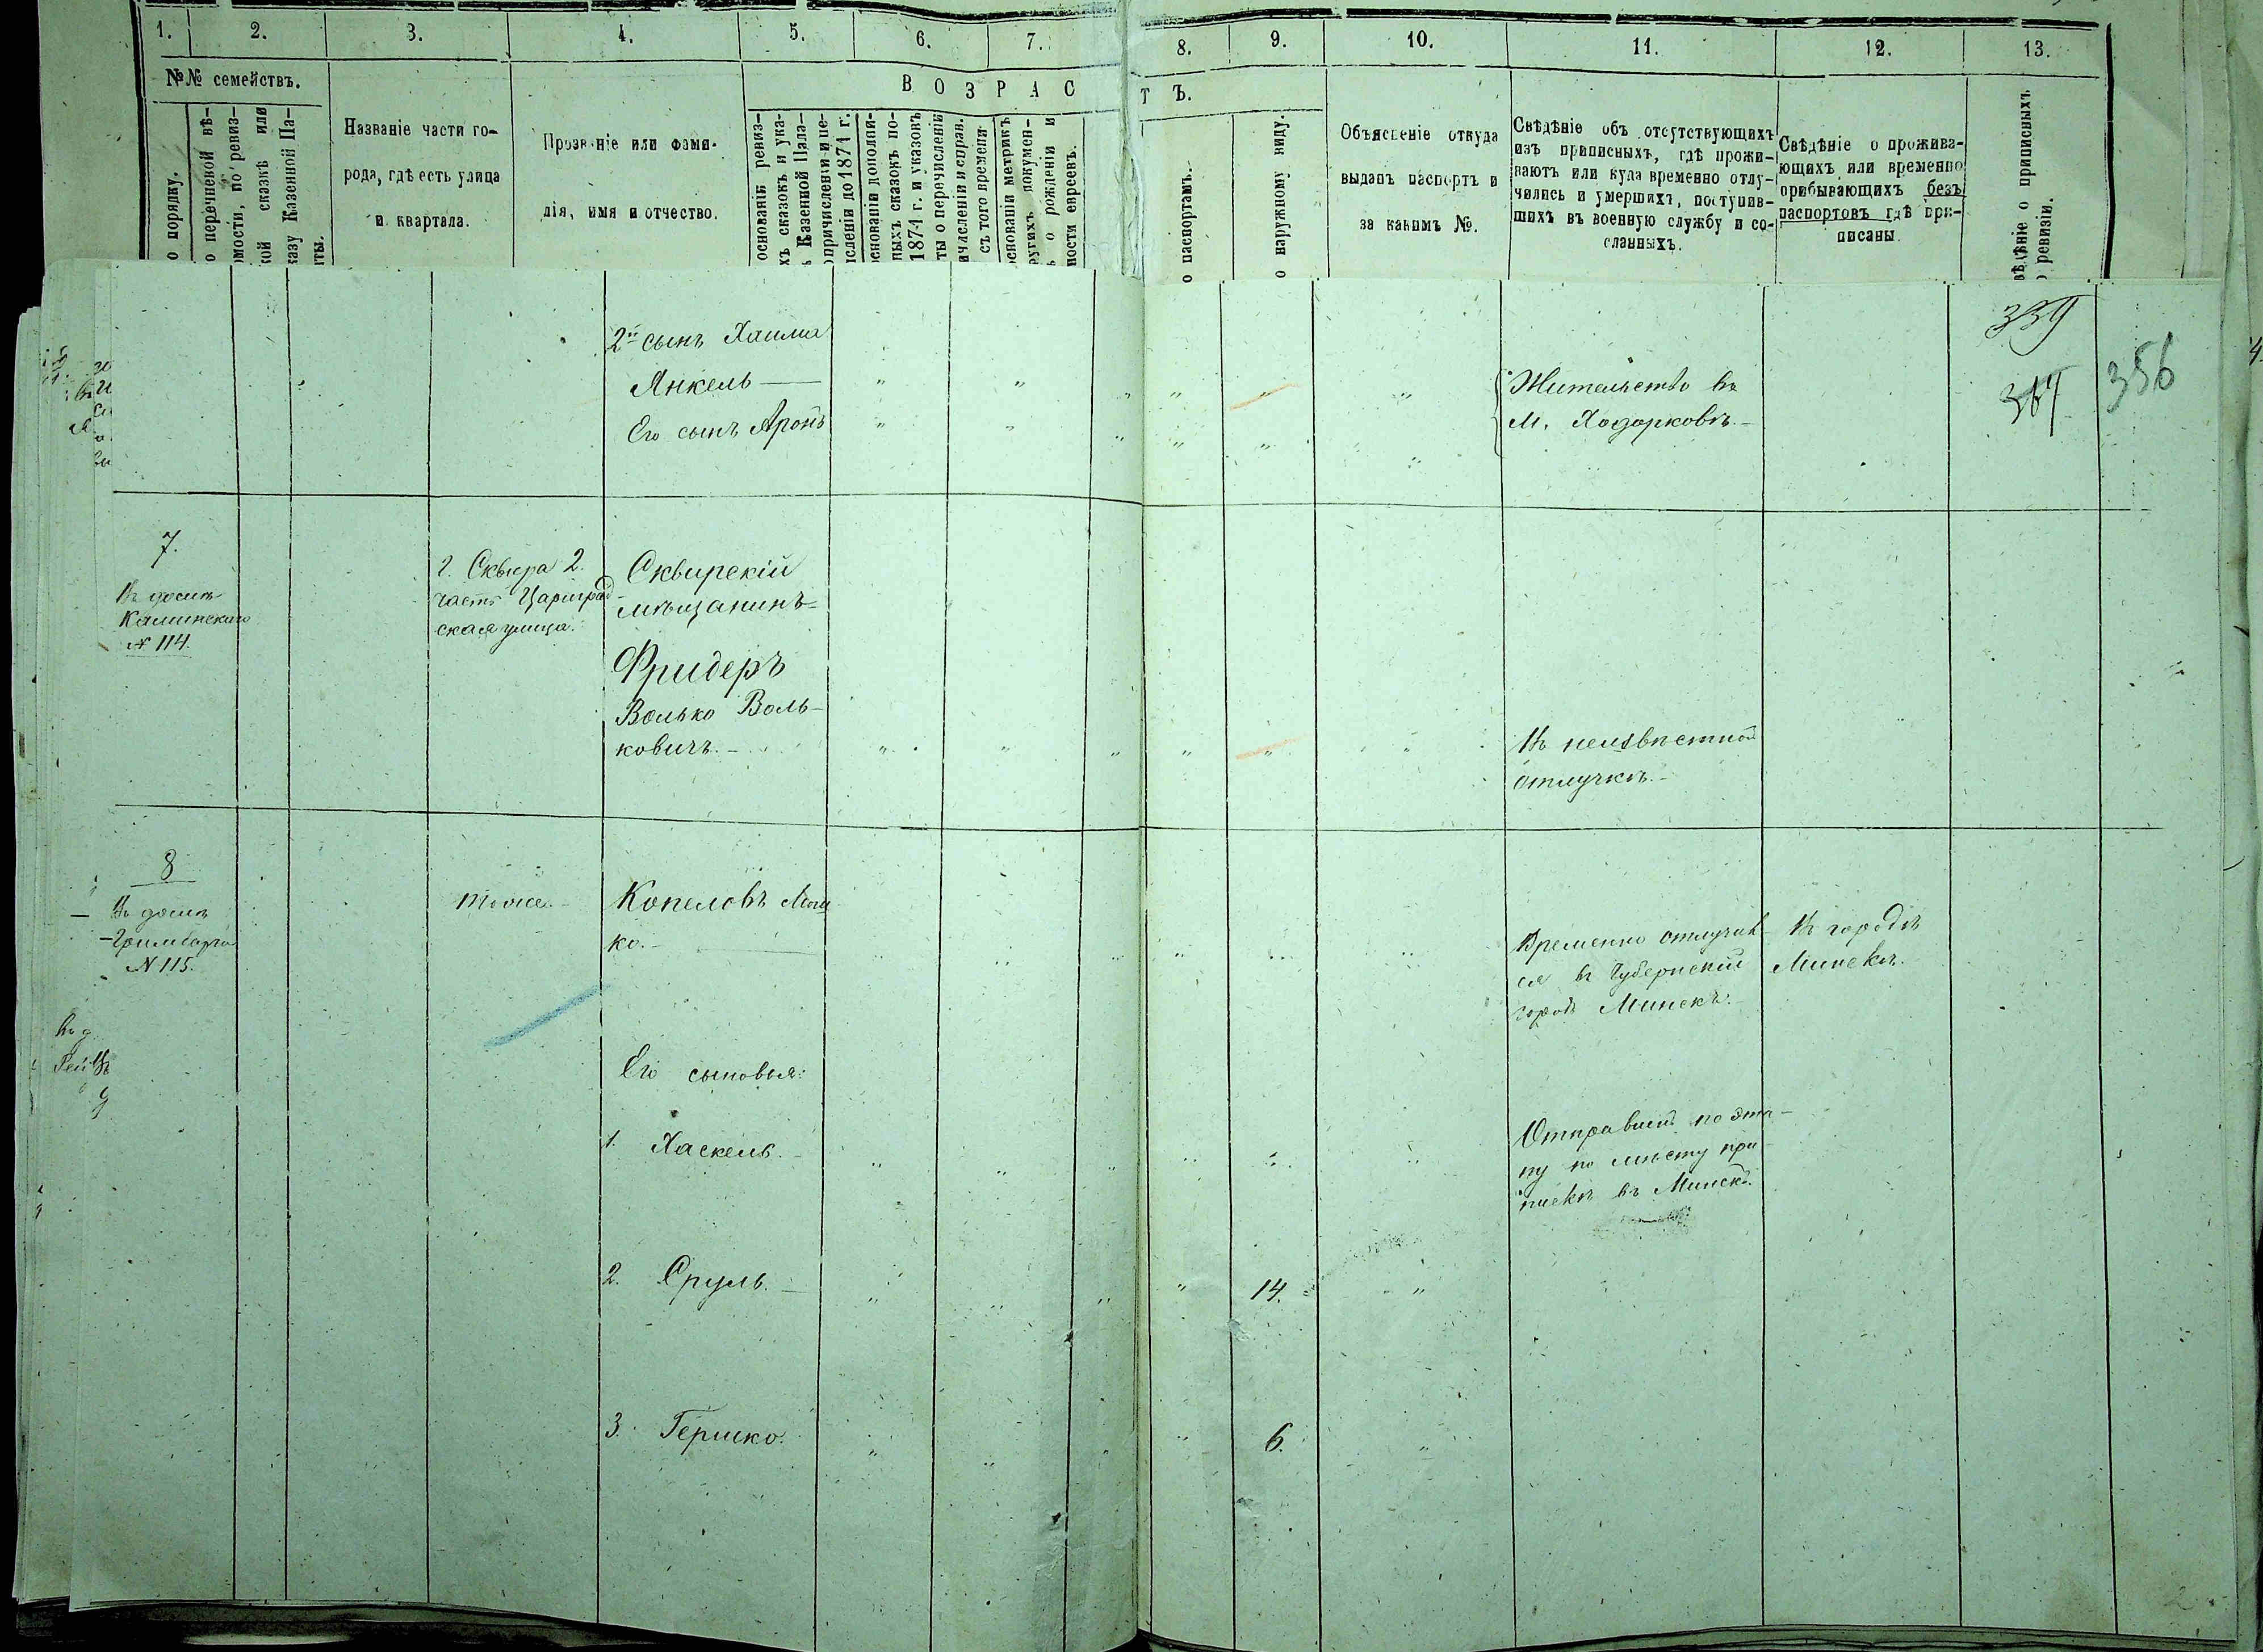 1. 2. 3. 4. 5. 6. 7. 8. 9. 10. 11. 12. 13.
№№ семействъ.
ВОЗРАСТЪ.
о порядку.
о перечневой вѣ-
омости, по ревиз-
кой сказкѣ или
казу Казенной Па-
ты.
Названіе части го-
рода, гдѣ есть улица
и квартала.
Прозваніе или фами-
лія, имя и отчество.
основаніи ревиз-
хъ сказокъ и ука-
ъ Казенной Пала-
опричисленіи и пе-
исленіи до 1871 г.
основаніи дополни-
ныхъ сказокъ по-
1871 г. и указовъ
ты о перечисленіи
ичисленіи и справ.
съ того времени
основаніи метрикъ
ругихъ докумен-
ъ о рожденіи и
ности евреевъ.
о паспортамъ.
о наружному виду.
Объясненіе откуда
выданъ паспортъ и
за какимъ №.
Свѣдѣніе объ отсутствующихъ
изъ приписныхъ, гдѣ прожи-
ваютъ или куда временно отлу-
чились и умершихъ, поступив-
шихъ въ военную службу и со-
сланныхъ.
Свѣдѣніе о прожива-
ющихъ или временно
прибывающихъ безъ
паспортовъ гдѣ при-
писаны.
вѣдѣніе о приписныхъ
о ревизіи.
339
356
2й сынъ Хаима
Янкель —
Его сынъ Аронъ
Жительство въ
м. Ходорковѣ. —
7.
Въ домѣ
Каминскаго
№ 114.
г. Сквира 2.
часть Цариград-
ская улица.
Сквирскій
мѣщанинъ
Фридеръ
Волько Воль-
ковичъ. —
Въ неизвѣстной
отлучкѣ. —
8
Въ домѣ
№ 115.
тоже. —
Копеловъ Мош
ко. —
Временно отлучив-
ся въ Губернскій
городъ Минскъ. —
Въ городѣ
Минскѣ.
Его сыновья:
1. Хаскель. —
Отправленъ по эта-
пу по мѣсту при-
пискѣ въ Минскъ.
2. Сруль. —
14.
3. Гершко.
6.